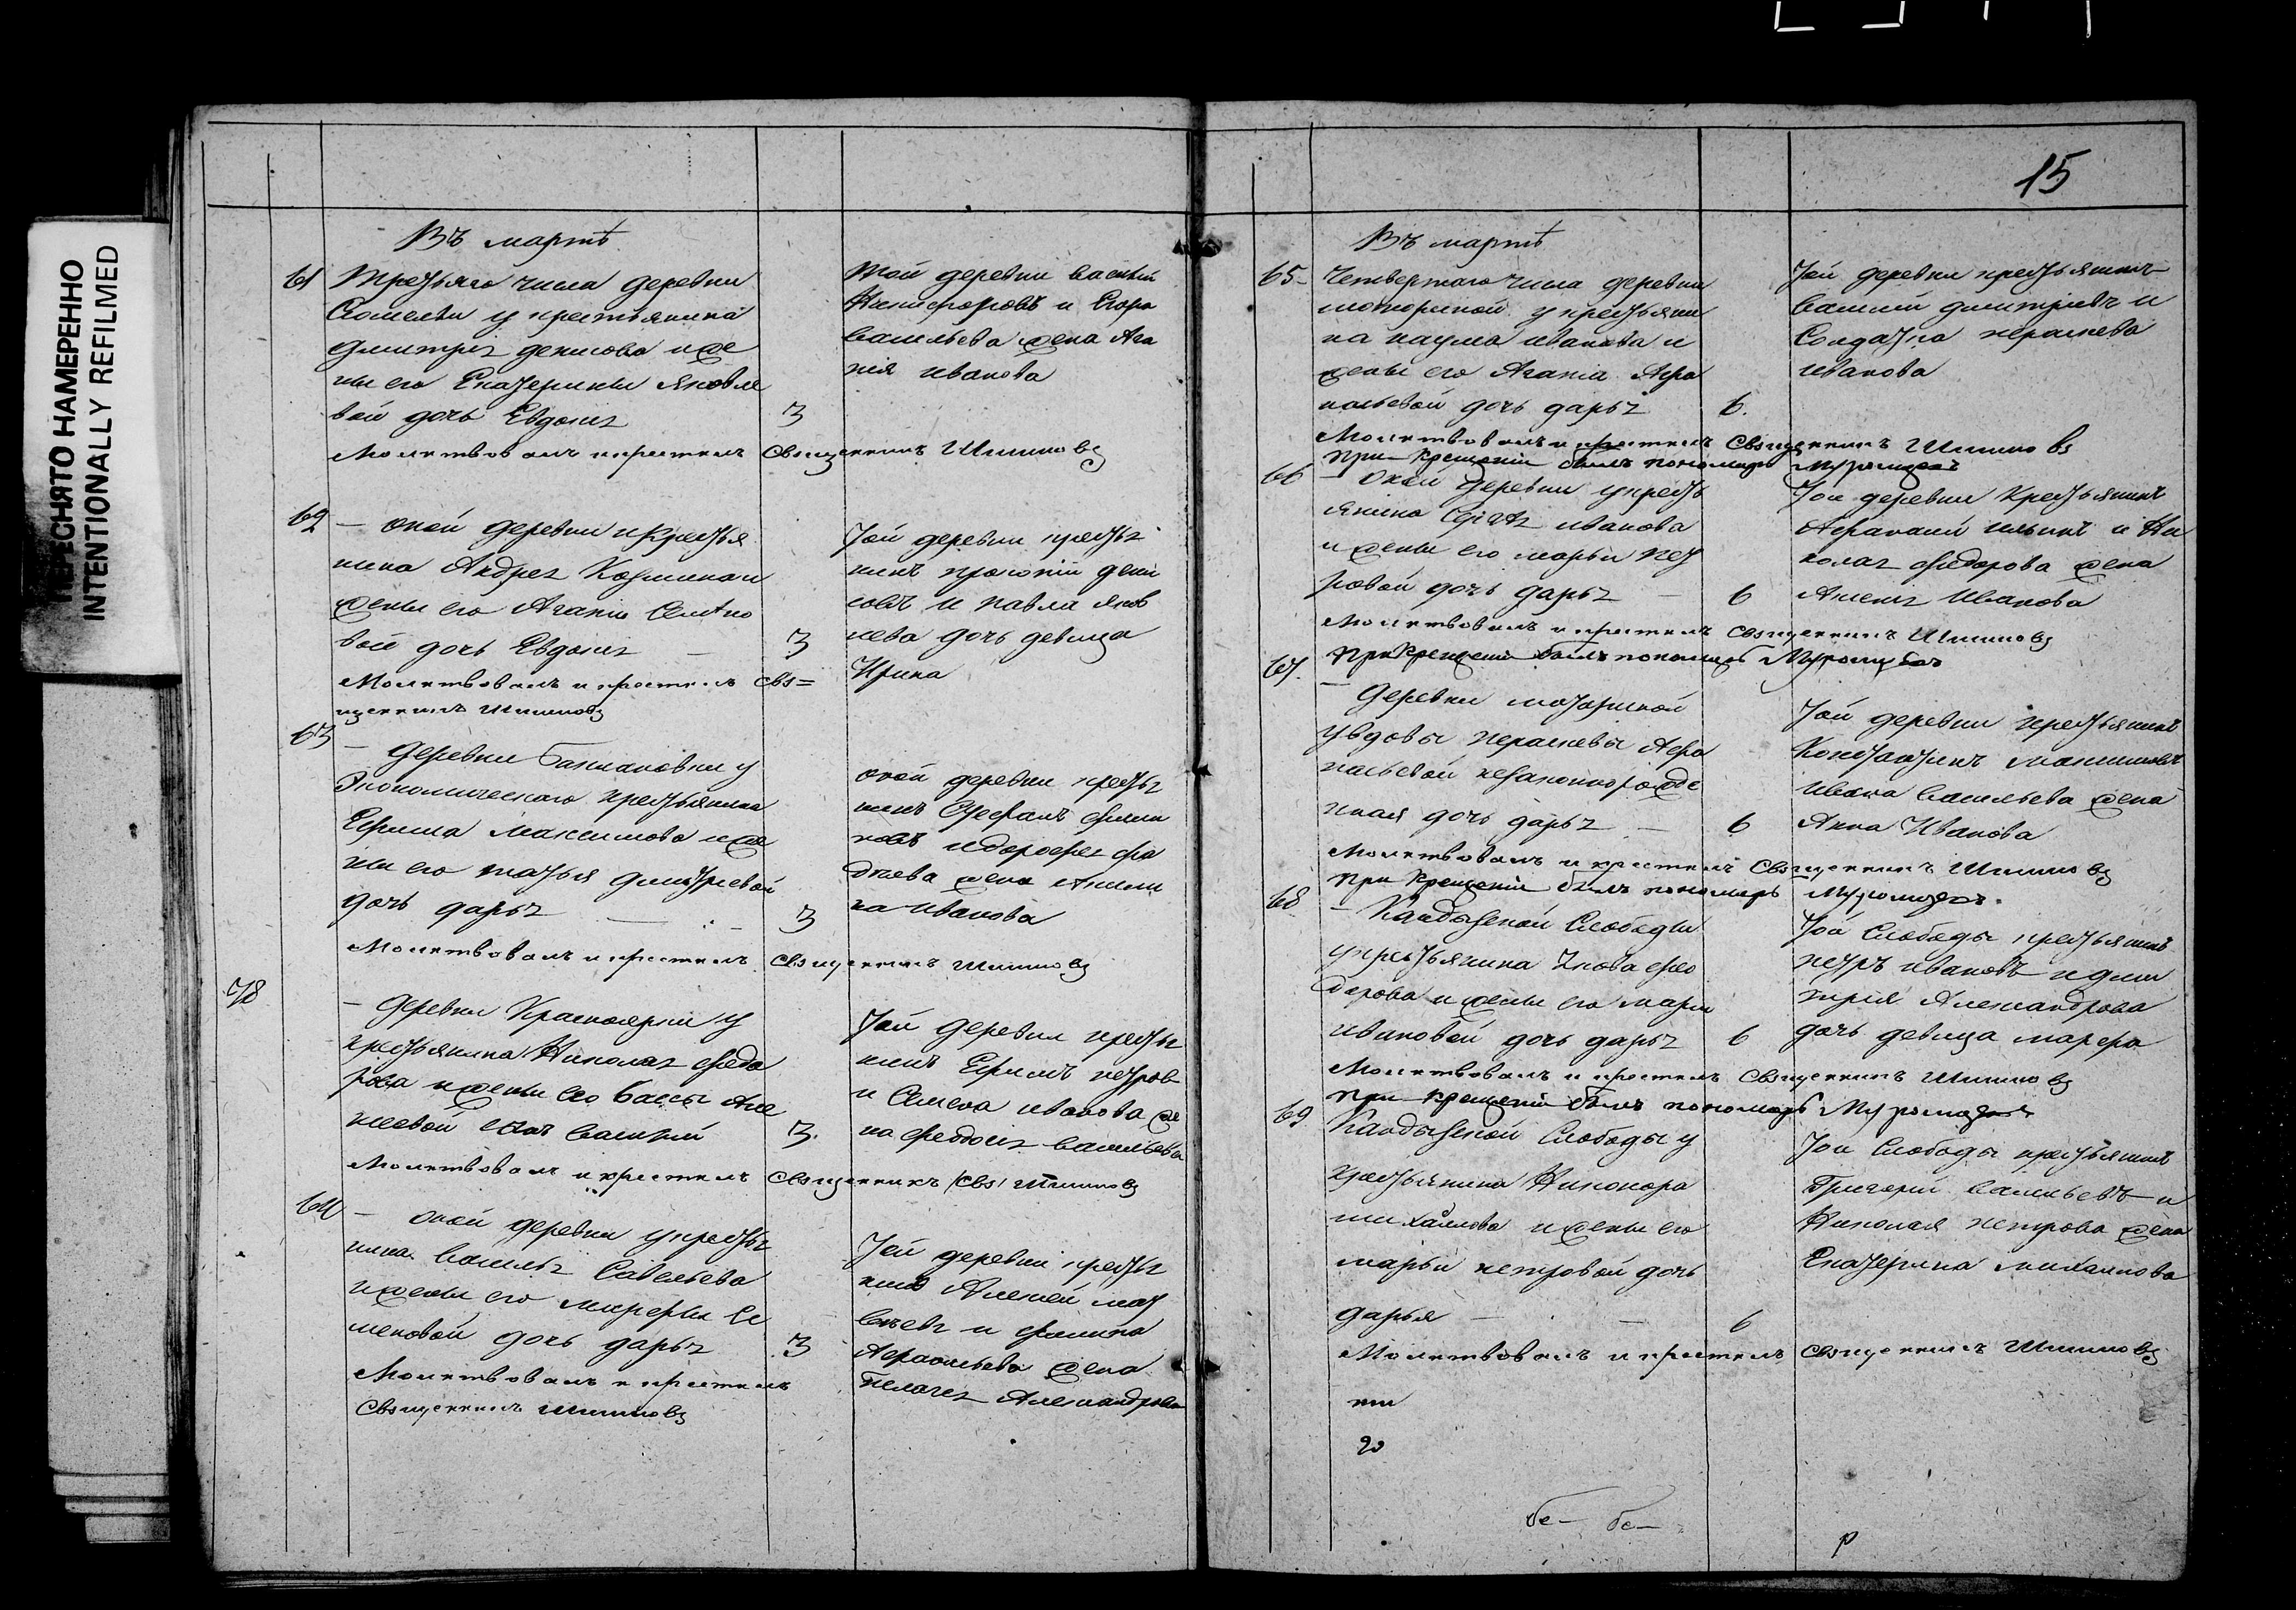 ПЕРЕСНЯТО НАМЕРЕННО
INTENTIONALLY REFILMED
Въ мартѣ
61 Третьяго числа деревни
у крестьянина
Дмитрія Денисова и же
ны его Екатерины Яковле
вой дочь Евдокія 3
Молитвовалъ и крестилъ Священникъ Шишковъ
Той деревни Василій
Никифоровъ и Егора
Васильева жена Ага
пія Иванова
62 — оной деревни у крестья
нина Андрея Козмина и
жены его Агапіи
вой дочь Евдокія — 3
Молитвовалъ и крестилъ Свя=
щенникъ Шишковъ
Той деревни крестья
нинъ Дени
совъ и Павла Яков
лева дочь девица
Ирина
63 — деревни у
Экономическаго крестьянина
Ефима Максимова и же
ны его Татьяи Дмитріевой
дочь Дарья — 3
Молитвовалъ и крестилъ Священникъ Шишковъ
оной деревни крестья
нинъ Стефанъ Филип
повъ и Дорофея
жена Акили
на Иванова
78 — деревни Красноярки у
крестьянина Николая Федо
рова и жены его Вассы Але
ксеевой сынъ Василий 3.
Молитвовалъ и крестилъ Священникъ /Свя/ Шишковъ
Той деревни крестья
нинъ Ефимъ Петров
и Семена Иванова же
на Федосья Васильева
64 — оной деревни у крестья
нина Василья Савельева
и жены его Се
меновой дочь Дарья 3
Молитвовалъ и крестилъ
Священникъ Шишковъ
Той деревни крестья
нинъ Алексей Мат
веевъ и Филипа
жена
Пелагея Александрова
15
Въ мартѣ
65 — Четвертаго числа деревни
у крестьяни
на Наума Иванова и
жены его Агапіи Афа
насьевой дочь Дарья 6.
Молитвовалъ и крестилъ Священникъ Шишковъ
При крещеніи былъ пономарь
Той деревни крестьянинъ
Василій Дмитріевъ и
Солдатка
Иванова
66 — Оной деревни у кресть
янина Иванова
и жены его Марьи Пет
ровой дочь Дарья — 6
Молитвовалъ и крестилъ Священникъ Шишковъ
При крещеніи былъ пономарь
Той деревни Крестьянинъ
Афанасій Ильинъ и Ни
колая Федорова жена
Иванова
67. — Деревни
у вдовы Афа
насьевой незаконнорожде
нная дочь Дарья — 6
Молитвовалъ и крестилъ Священникъ Шишковъ
При крещеніи былъ пономарь
Той деревни крестьянинъ
Константинъ Максимовъ
Ивана Васильева жена
Анна Иванова
68 — Слободы
у крестьянина Якова Фео
дорова и жены его Марьи
Ивановой дочь Дарья 6
Молитвовалъ и крестилъ Священникъ Шишковъ
При крещеніи былъ пономарь
Той Слободы крестьянинъ
Петръ Ивановъ и Дми
трія Александрова
дочь девица Марфа
69 Слободы у
крестьянина Никонора
Михайлова и жены его
Марьи Петровой дочь
Дарья — — 6
Молитвовалъ и крестилъ Священникъ Шишковъ
Той Слободы крестьянинъ
Григорій Васильевъ и
Николая Петрова жена
Екатерина Михаилова